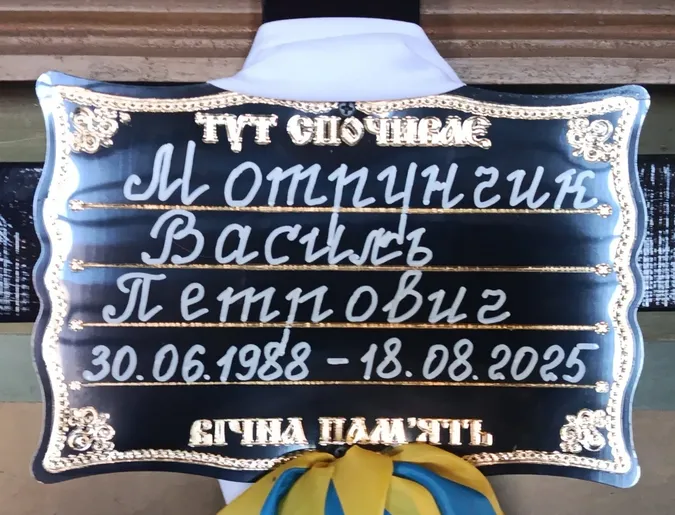 ТУТ СПОЧИВАЄ
Мотрунчик
Василь
Петрович
30.06.1988 - 18.08.2025
ВІЧНА ПАМ'ЯТЬ